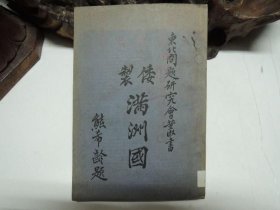 東北問題研究會叢書
倭製
滿洲國
熊希齡題